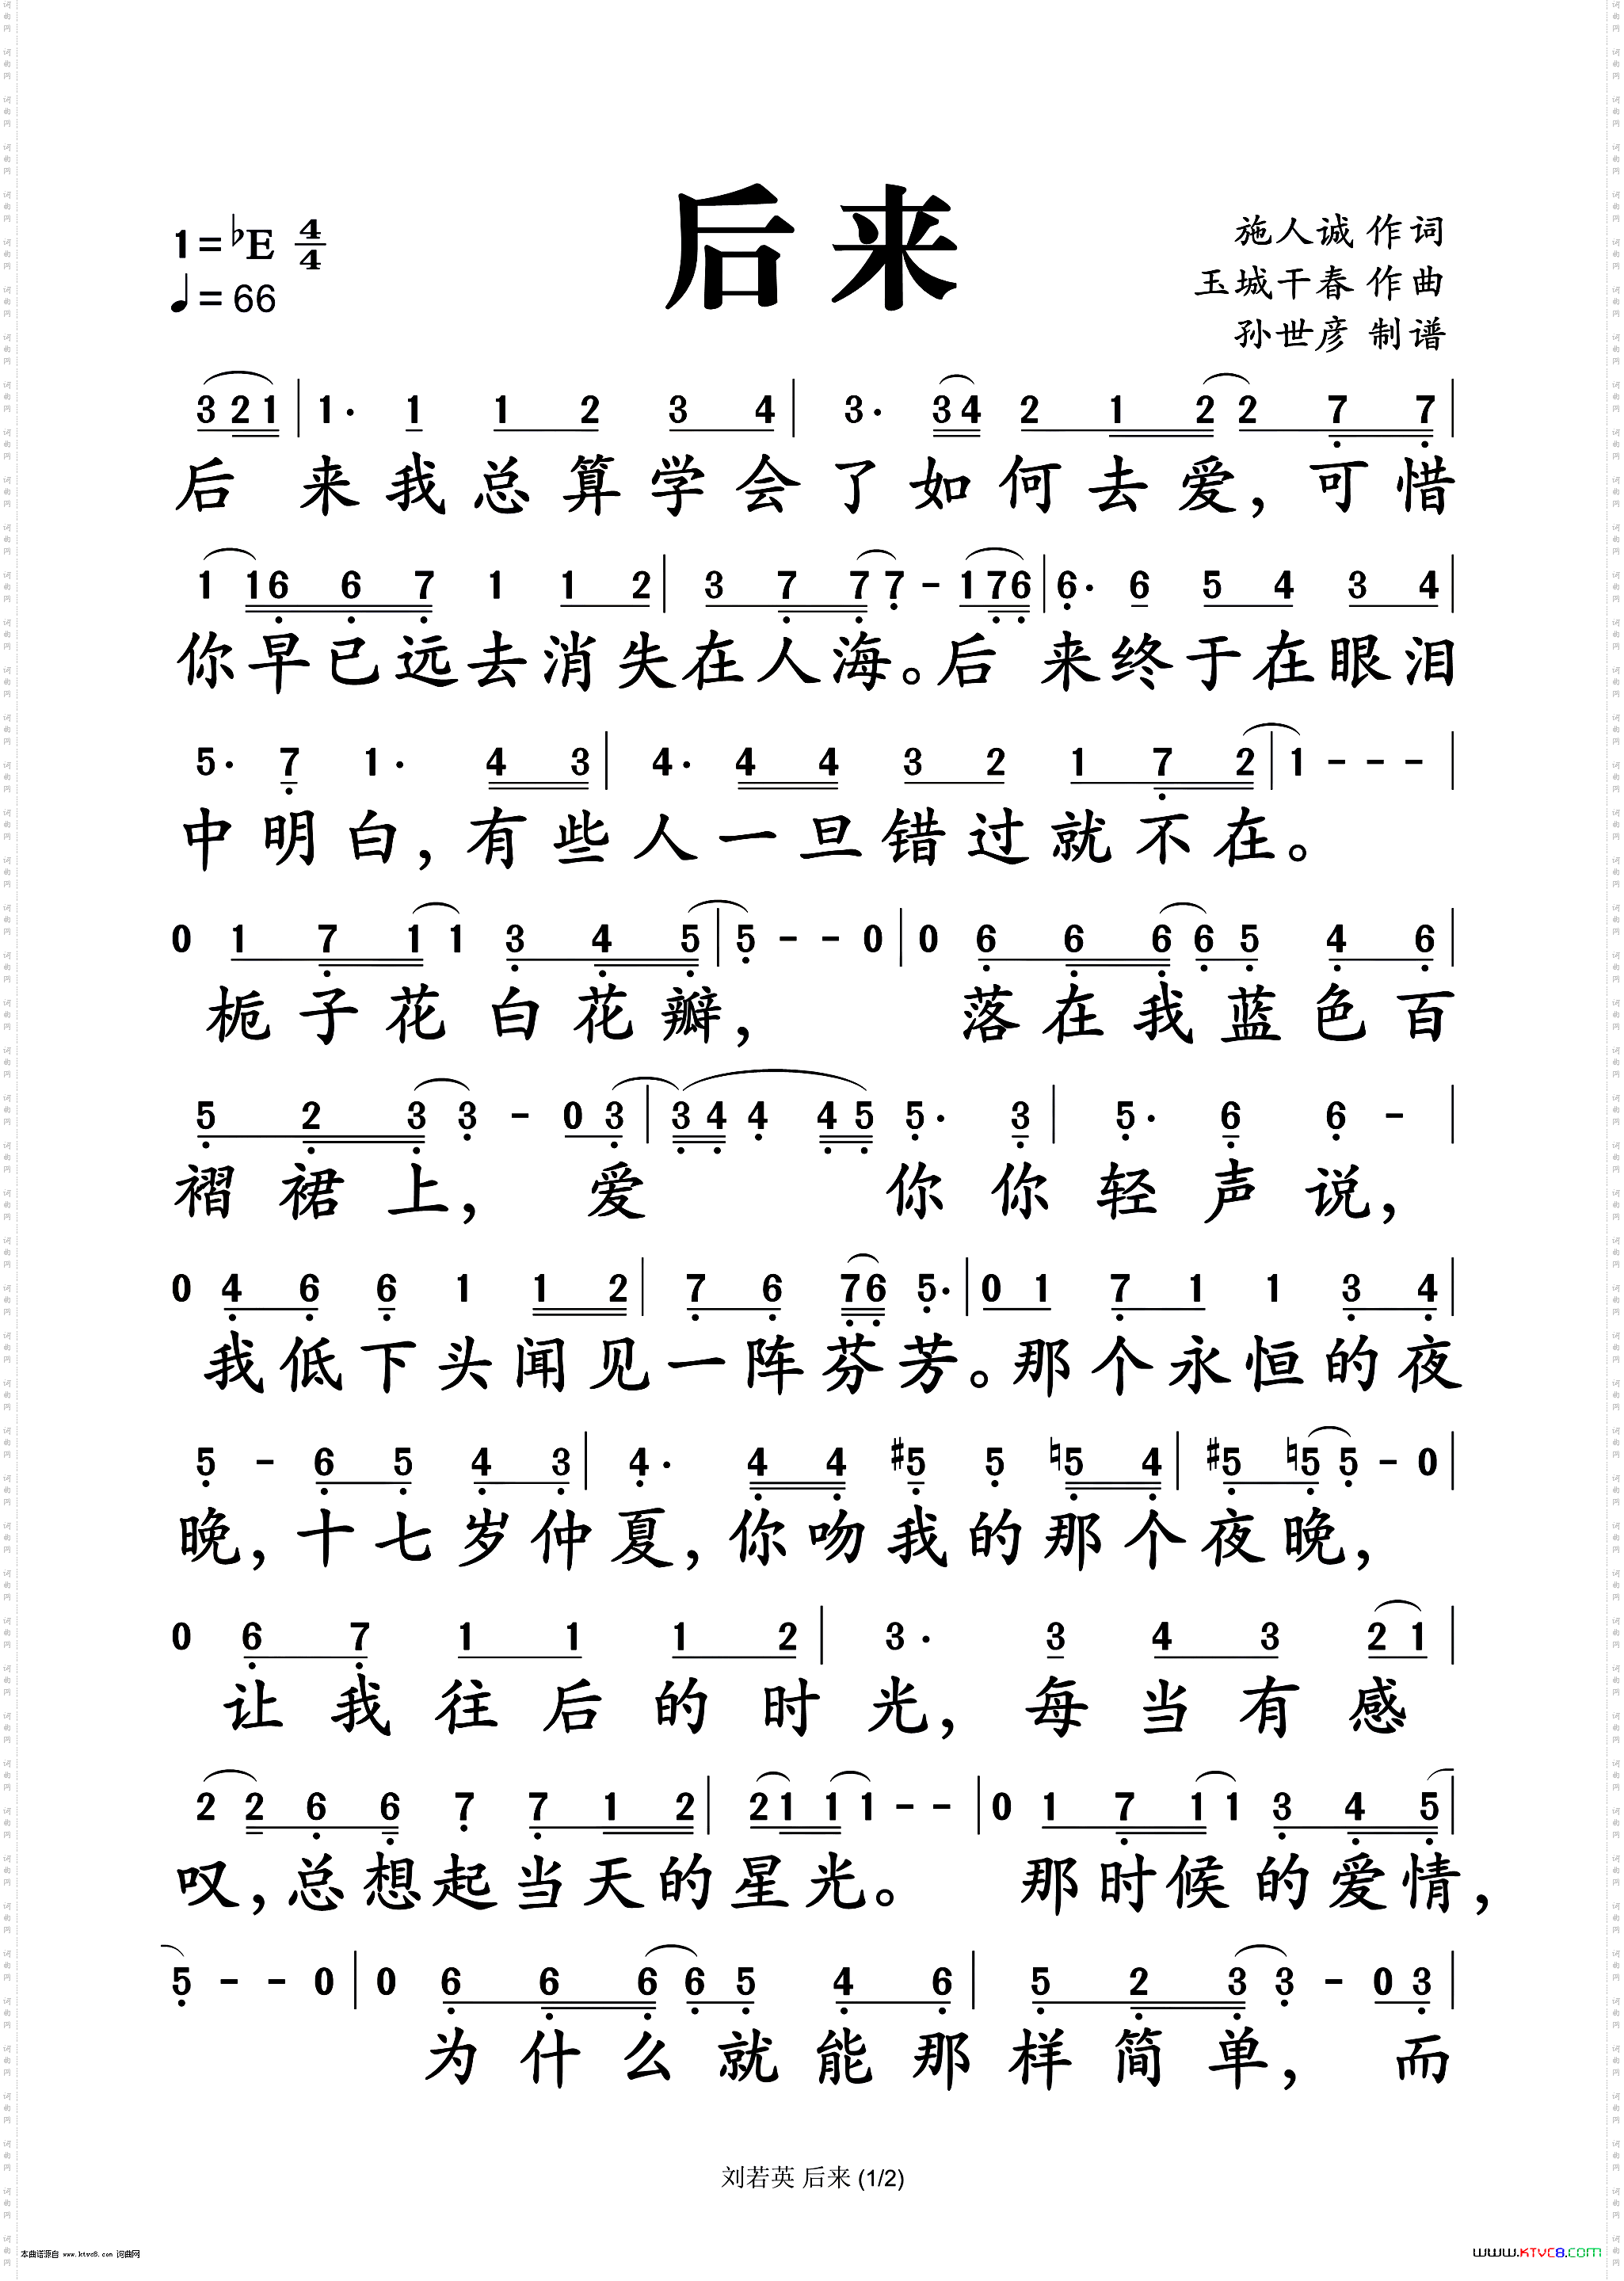 后来
1=♭E 4/4
♩=66
施人诚 作词
玉城干春 作曲
孙世彦 制谱
3 2 1 | 1· 1 1 2 3 4 | 3· 3 4 2 1 2 2 7 7 |
后 来我总算学会了如何去爱，可惜
1 1 6 6 7 1 1 2 | 3 7 7 7 - 1 7 6 | 6· 6 5 4 3 4 |
你早已远去消失在人海。后 来终于在眼泪
5· 7 1· 4 3 | 4· 4 4 3 2 1 7 2 | 1 - - - |
中明白，有些人一旦错过就不在。
0 1 7 1 1 3 4 5 | 5 - - 0 | 0 6 6 6 6 5 4 6 |
栀子花白花瓣， 落在我蓝色百
5 2 3 3 - 0 3 | 3 4 4 4 5 5· 3 | 5· 6 6 - |
褶裙上， 爱 你你轻声说，
0 4 6 6 1 1 2 | 7 6 7 6 5· | 0 1 7 1 1 3 4 |
我低下头闻见一阵芬芳。那个永恒的夜
5 - 6 5 4 3 | 4· 4 4 ♯5 5 ♮5 4 | ♯5 ♮5 5 - 0 |
晚，十七岁仲夏，你吻我的那个夜晚，
0 6 7 1 1 1 2 | 3· 3 4 3 2 1 |
让我往后的时光，每当有感
2 2 6 6 7 7 1 2 | 2 1 1 1 - - | 0 1 7 1 1 3 4 5 |
叹，总想起当天的星光。 那时候的爱情，
5 - - 0 | 0 6 6 6 6 5 4 6 | 5 2 3 3 - 0 3 |
为什么就能那样简单， 而
刘若英 后来 (1/2)
本曲谱源自 www.ktvc8.com 词曲网
www.KTVC8.COM